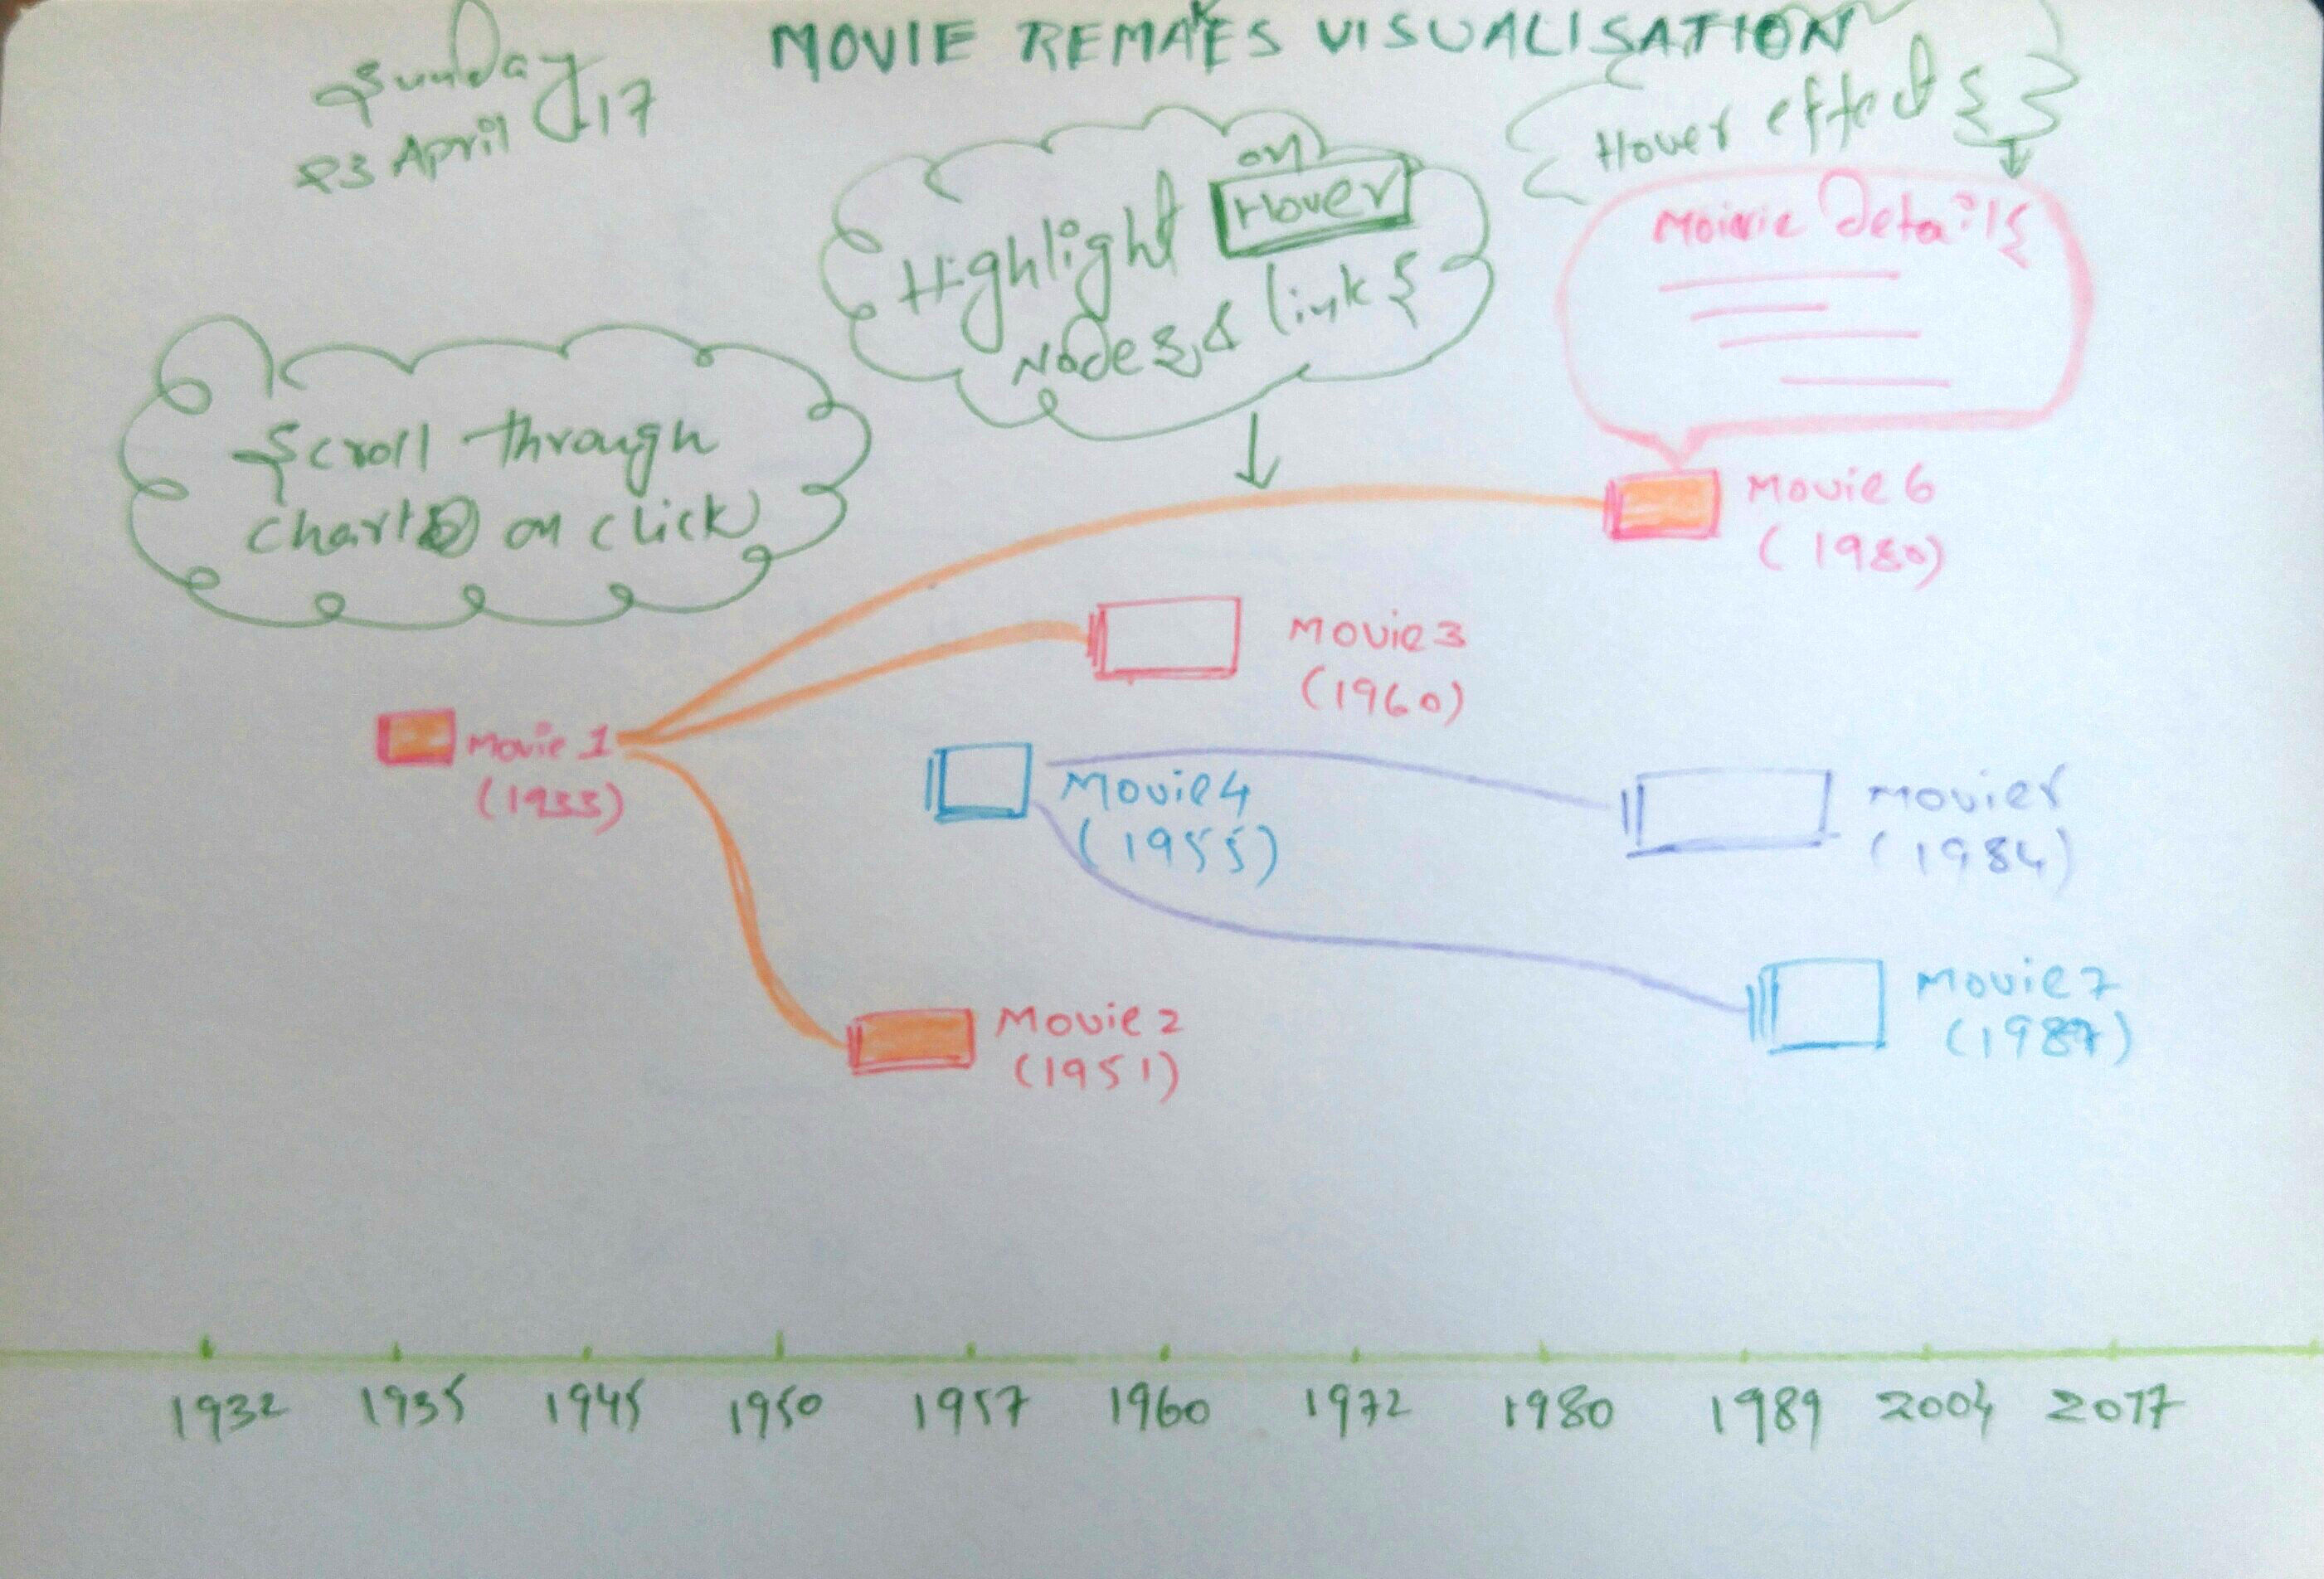 MOVIE REMAKES VISUALISATION
Sunday
23 April 17
Hover effects
on
Highlight Hover
Nodes & links
Movie Details
Scroll through
charts on click
Movie 6
(1980)
Movie 3
(1960)
Movie 1
(1933)
Movie 4
(1955)
Movie
(1984)
Movie 2
(1951)
Movie 7
(1987)
1932 1935 1945 1950 1957 1960 1972 1980 1989 2004 2017